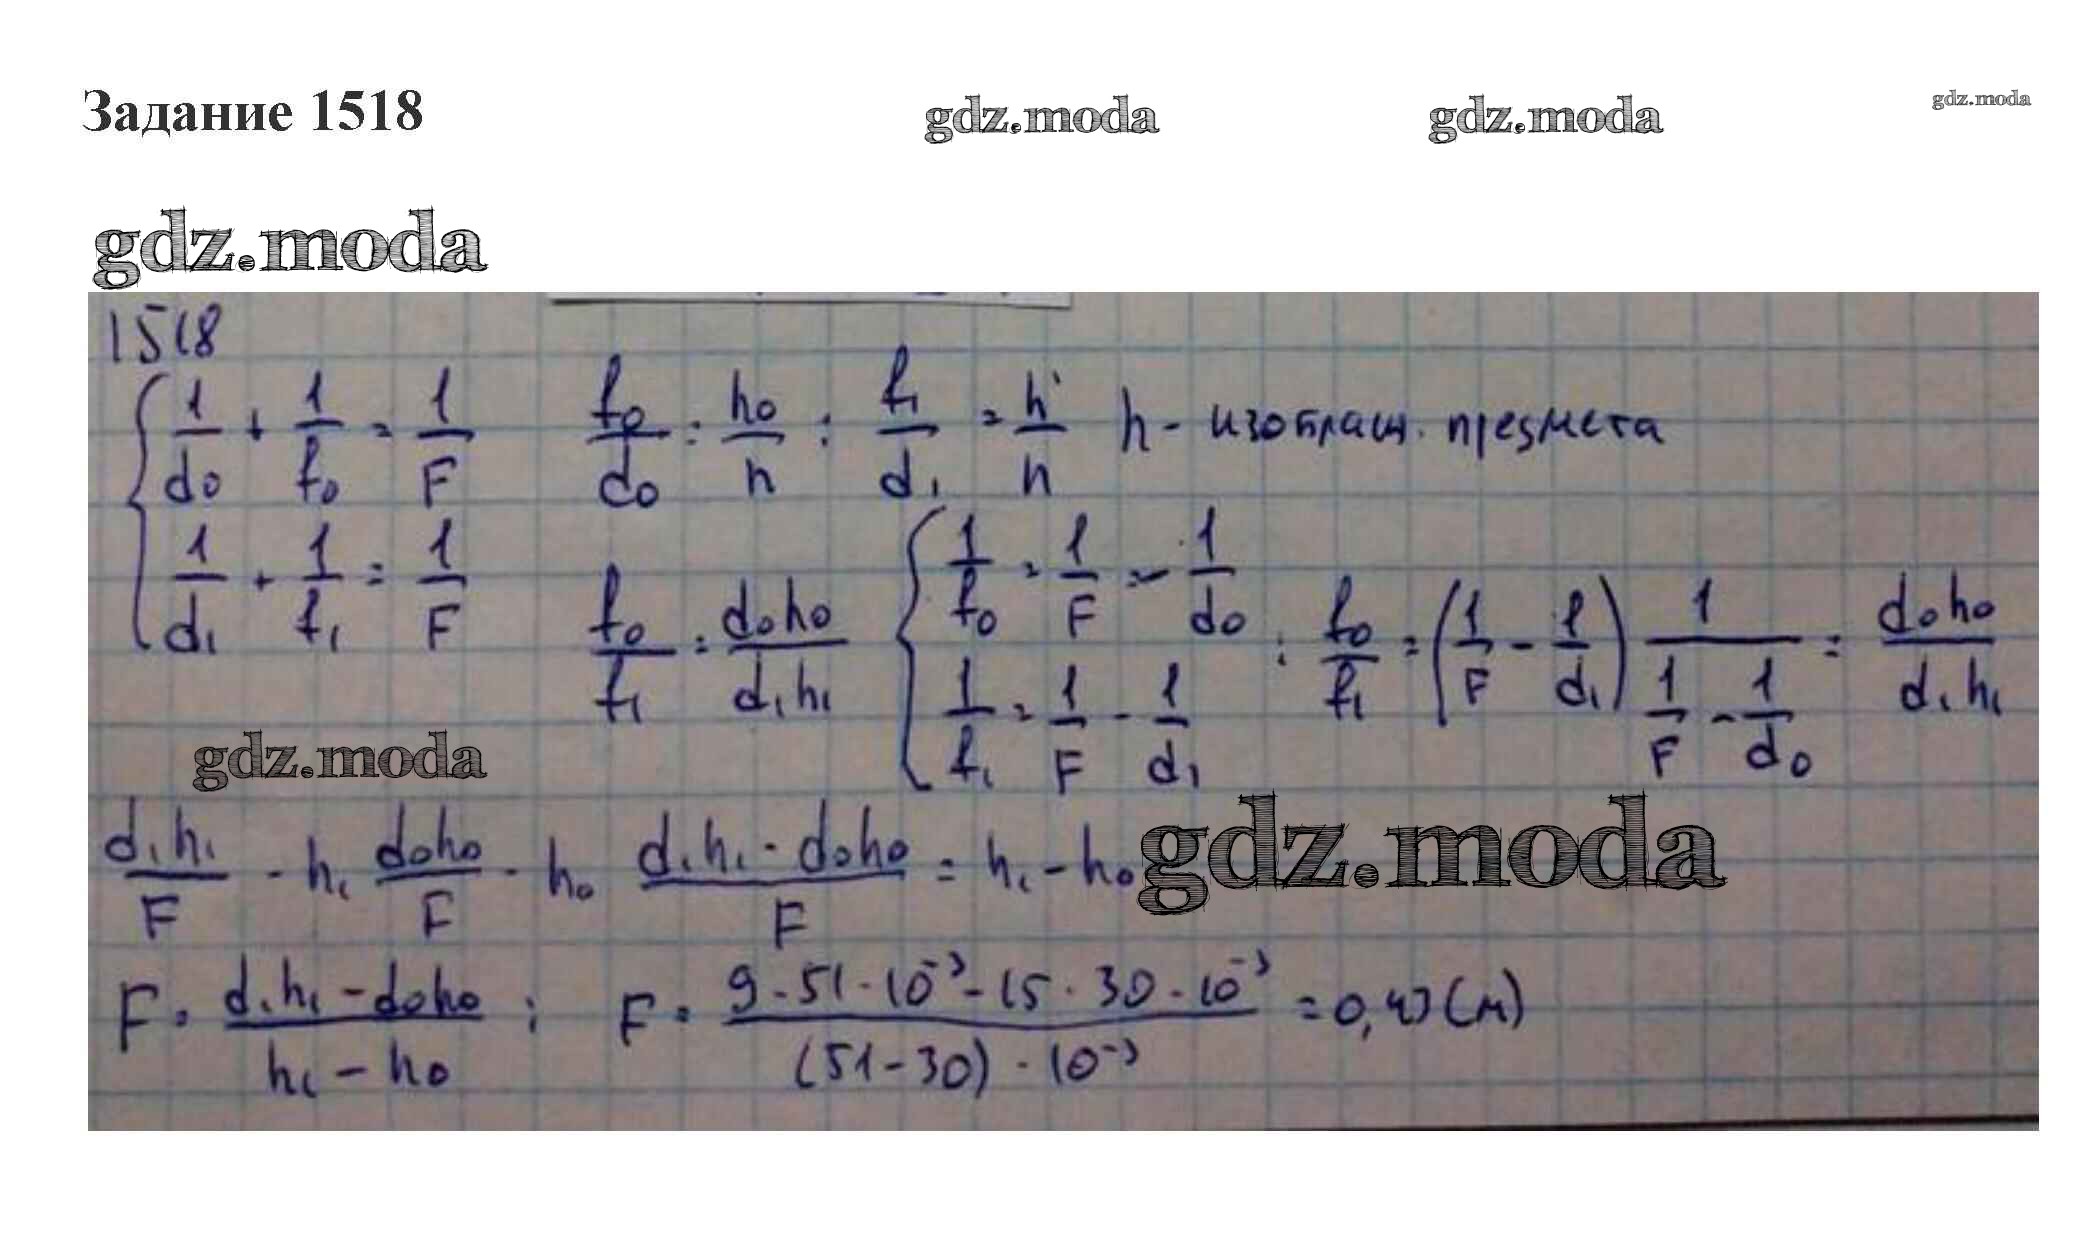 Задание 1518
gdz.moda gdz.moda gdz.moda
gdz.moda
1518
{ 1/d₀ + 1/f₀ = 1/F   f₀/d₀ = h₀/h ; f₁/d₁ = h'/h   h - изображ. предмета
1/d₁ + 1/f₁ = 1/F   f₀/f₁ = d₀h₀/d₁h₁   { 1/f₀ = 1/F - 1/d₀
1/f₁ = 1/F - 1/d₁ ; f₀/f₁ = (1/F - 1/d₁) 1/(1/F - 1/d₀) = d₀h₀/d₁h₁
gdz.moda
d₁h₁/F - h₁ d₀h₀/F - h₀ (d₁h₁ - d₀h₀)/F = h₁ - h₀
gdz.moda
F = (d₁h₁ - d₀h₀)/(h₁ - h₀) ; F = (9·51·10⁻³ - 15·30·10⁻³)/((51-30)·10⁻³) = 0,43 (м)